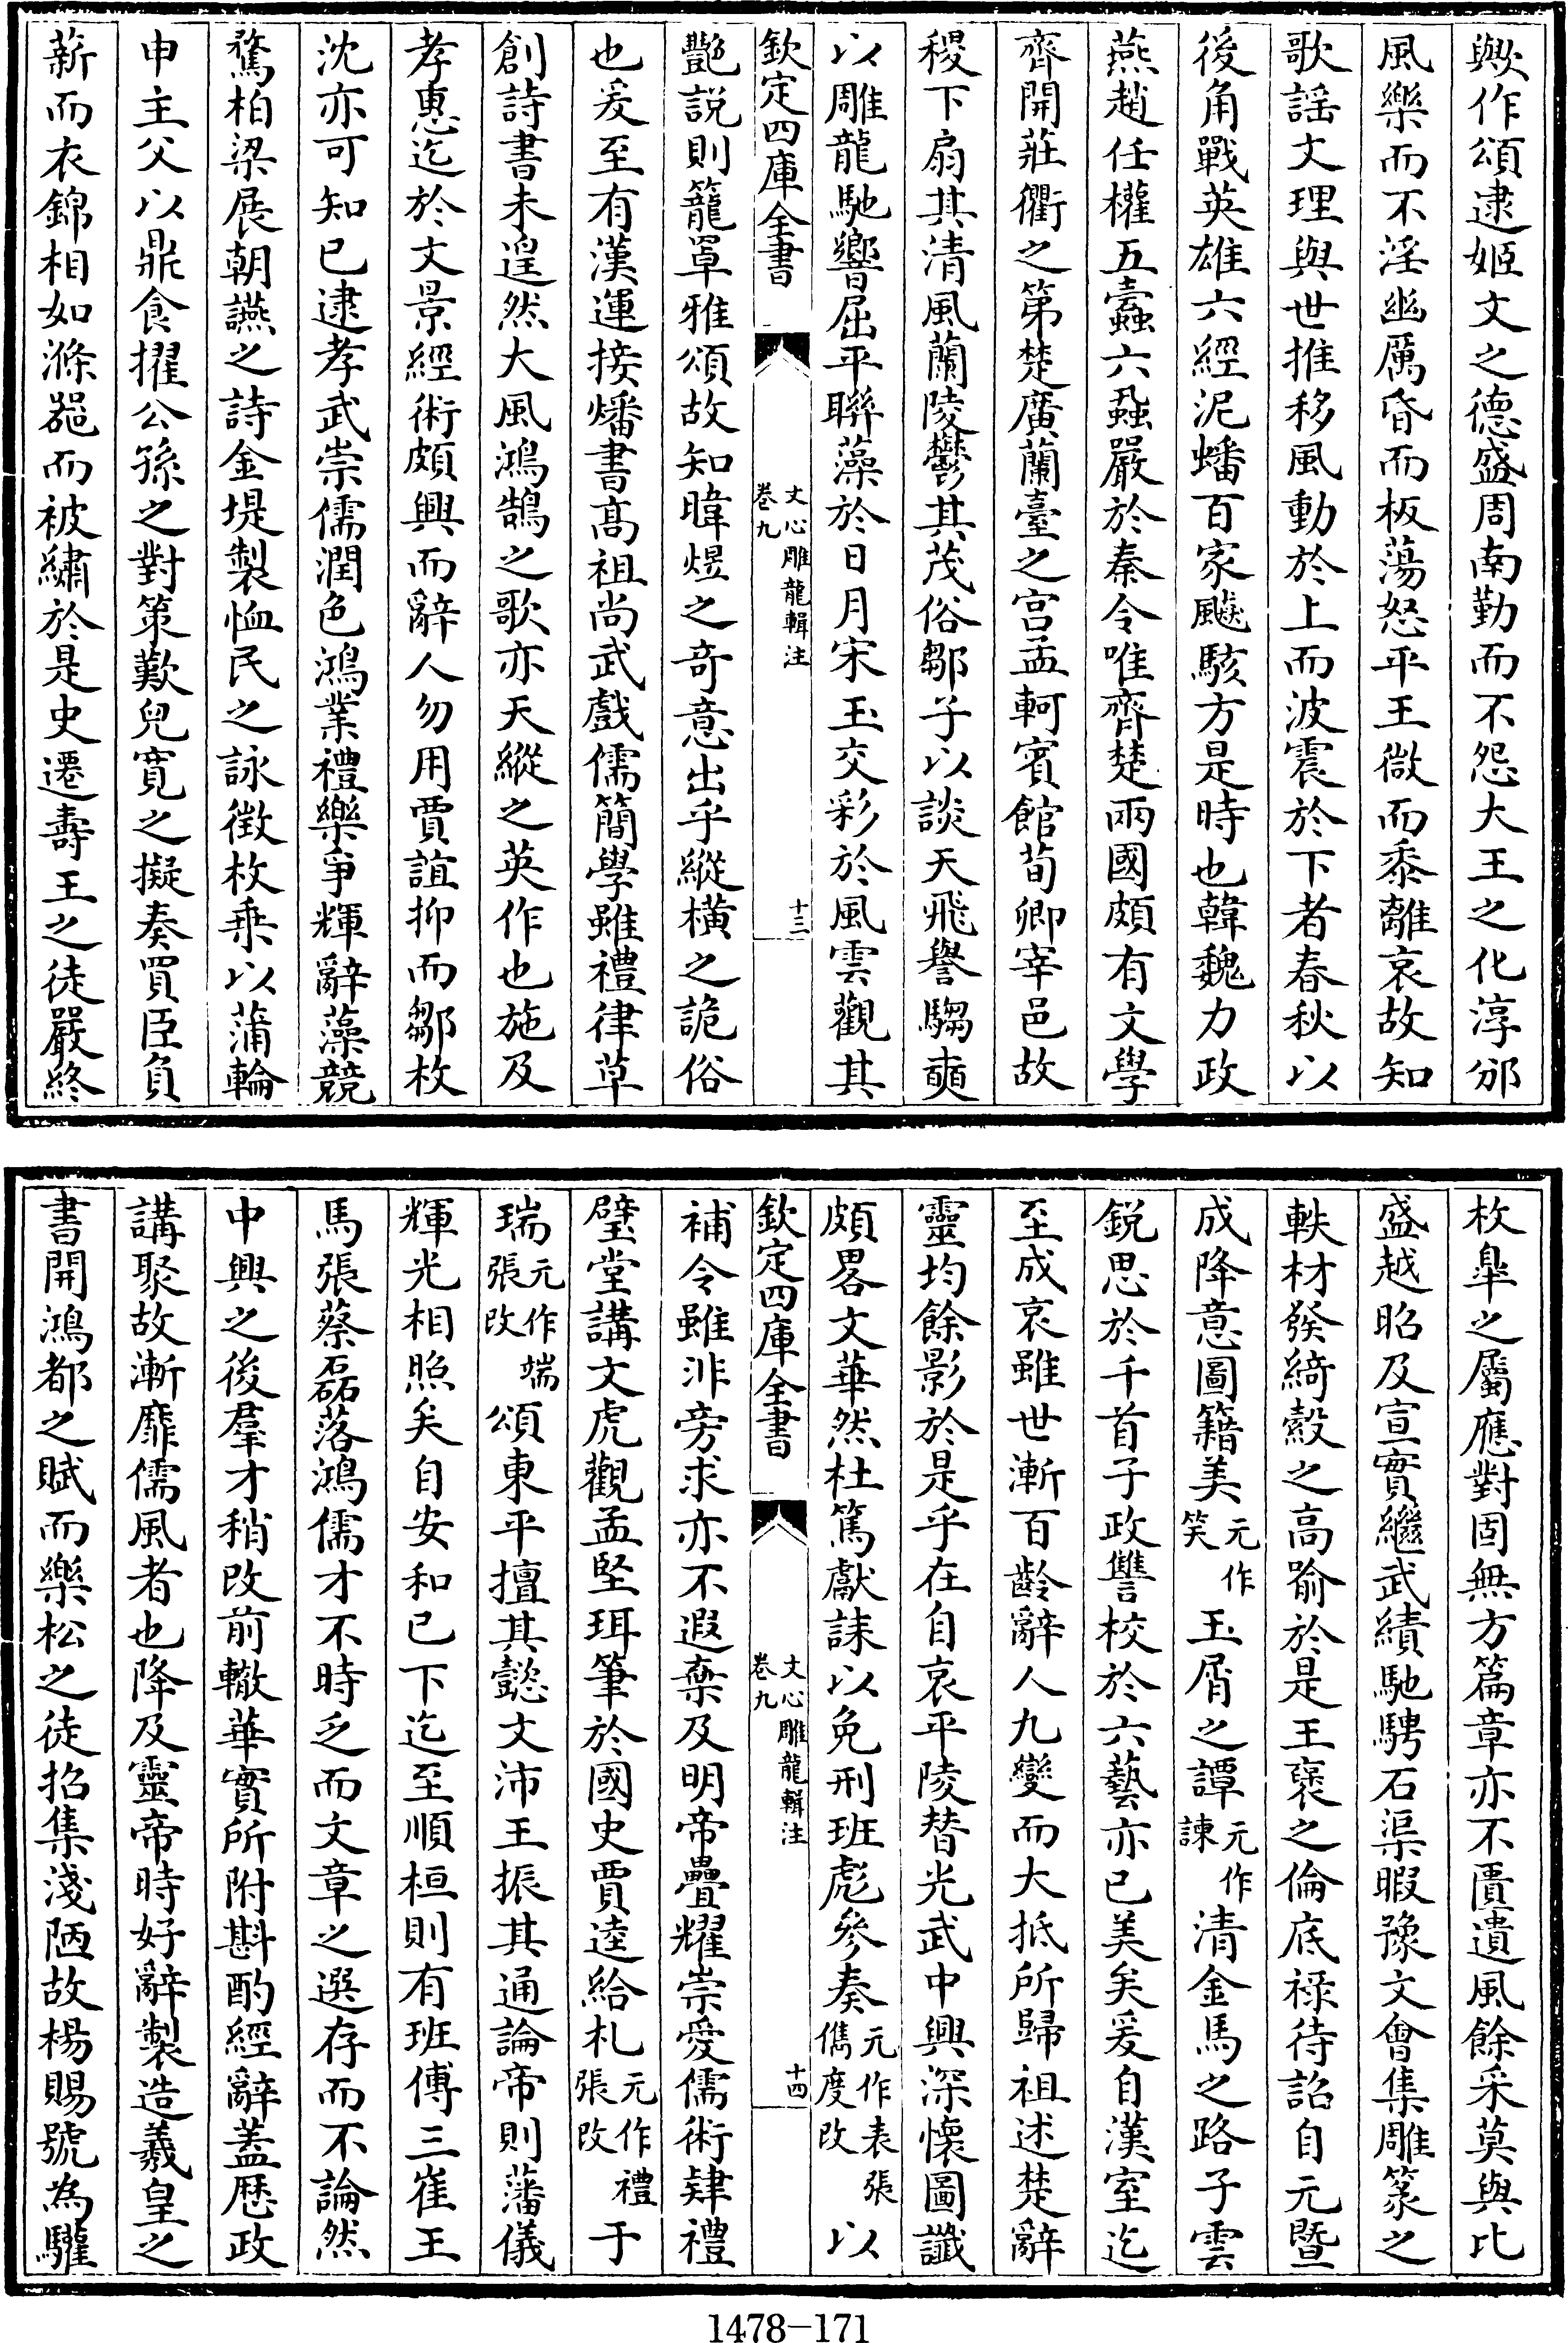 歟作頌逮姬文之德盛周南勤而不怨大王之化淳邠
風樂而不淫幽厲昏而板蕩怒平王微而黍離哀故知
歌謡文理與世推移風動於上而波震於下者春秋以
後角戰英雄六經泥蟠百家飇駭方是時也韓魏力政
燕趙任權五蠧六蝨嚴於秦令唯齊楚兩國頗有文學
齊開莊衢之第楚廣蘭臺之宫孟軻賓館荀卿宰邑故
稷下扇其清風蘭陵鬱其茂俗鄒子以談天飛譽騶奭
以雕龍馳響屈平聯藻於日月宋玉交彩於風雲觀其
欽定四庫全書
文心雕龍輯注
卷九
十三
艷説則籠罩雅頌故知暐煜之奇意出乎縱横之詭俗
也爰至有漢運接燔書髙祖尚武戲儒簡學雖禮律草
創詩書未遑然大風鴻鵠之歌亦天縱之英作也施及
孝惠迄於文景經術頗興而辭人勿用賈誼抑而鄒枚
沈亦可知已逮孝武崇儒潤色鴻業禮樂爭輝辭藻競
騖柏梁展朝讌之詩金堤製恤民之詠徴枚乗以蒲輪
申主父以鼎食擢公孫之對策歎兒寛之擬奏買臣負
薪而衣錦相如滌器而被繡於是史遷壽王之徒嚴終
枚臯之屬應對固無方篇章亦不匱遺風餘采莫與比
盛越昭及宣實繼武績馳騁石渠暇豫文會集雕篆之
軼材發綺縠之高喻於是王襃之倫底禄待詔自元暨
成降意圖籍美元作笑玉屑之譚元作諫清金馬之路子雲
鋭思於千首子政讐校於六藝亦已美矣爰自漢室迄
至成哀雖世漸百齡辭人九變而大抵所歸祖述楚辭
靈均餘影於是乎在自哀平陵替光武中興深懷圖讖
頗畧文華然杜篤獻誄以免刑班彪參奏元作表張儁度改以
欽定四庫全書
文心雕龍輯注
卷九
十四
補令雖非旁求亦不遐棄及明帝疊耀崇愛儒術肄禮
璧堂講文虎觀孟堅珥筆於國史賈逵給札元作禮張改于
瑞元作端張改頌東平擅其懿文沛王振其通論帝則藩儀
輝光相照矣自安和已下迄至順桓則有班傅三崔王
馬張蔡磊落鴻儒才不時乏而文章之選存而不論然
中興之後羣才稍改前轍華實所附斟酌經辭蓋歴政
講聚故漸靡儒風者也降及靈帝時好辭製造羲皇之
書開鴻都之賦而樂松之徒招集淺陋故楊賜號為驩
1478-171